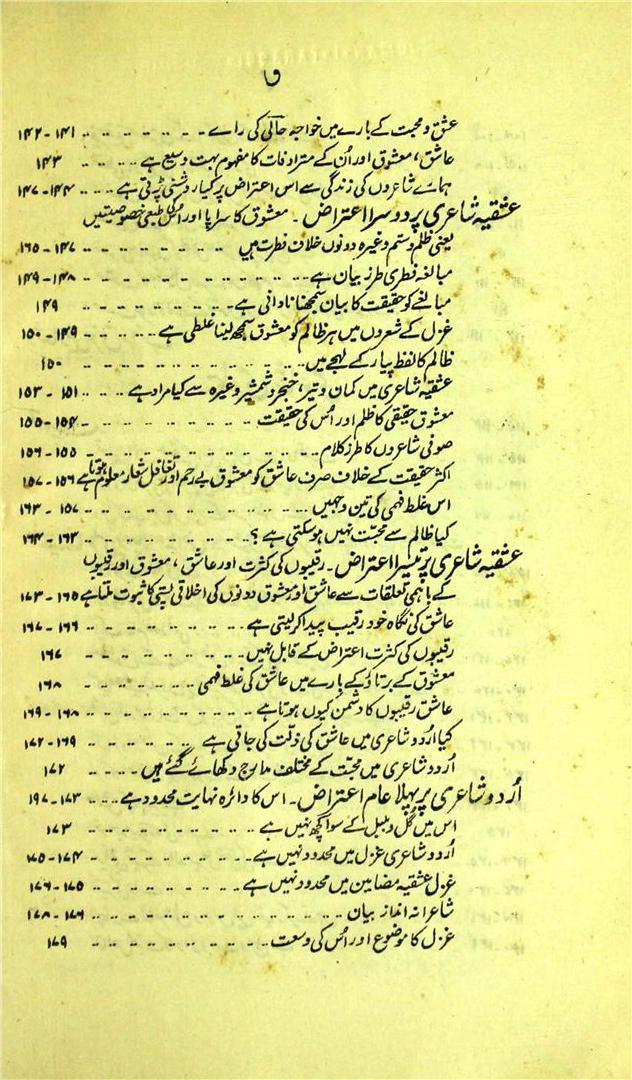 و
عشق و محبت کے بارے میں خواجہ حالی کی رائے ۔ ۔ ۔ ۔ ۔ ۔ ۔ ۱۴۱ - ۱۴۲
عاشق، معشوق اور اُن کے مترادفات کا مفہوم بہت وسیع ہے ۔ ۔ ۔ ۔ ۱۴۳
ہمارے شاعروں کی زندگی سے اس اعتراض پر کیا روشنی پڑتی ہے ۔ ۔ ۔ ۱۴۴ - ۱۴۷
عشقیہ شاعری پر دوسرا اعتراض ۔ معشوق کا سراپا اور اُسکی طبعی خصوصیتیں
یعنی ظلم و ستم وغیرہ دونوں خلاف فطرت ہیں ۔ ۔ ۔ ۔ ۔ ۔ ۔ ۱۴۷ - ۱۶۵
مبالغہ فطری طرز بیان ہے ۔ ۔ ۔ ۔ ۔ ۔ ۔ ۔ ۔ ۱۴۸ - ۱۴۹
مبالغے کو حقیقت کا بیان سمجھنا نادانی ہے ۔ ۔ ۔ ۔ ۔ ۔ ۔ ۱۴۹
غزل کے شعروں میں ہر ظالم کو معشوق سمجھ لینا غلطی ہے ۔ ۔ ۔ ۔ ۔ ۱۴۹ - ۱۵۰
ظالم کا لفظ پیار کے لہجے میں ۔ ۔ ۔ ۔ ۔ ۔ ۔ ۔ ۔ ۱۵۰
عشقیہ شاعری میں کمان و تیر، خنجر و شمشیر وغیرہ سے کیا مراد ہے ۔ ۔ ۔ ۔ ۱۵۱ - ۱۵۳
معشوق حقیقی کا ظلم اور اُس کی حقیقت ۔ ۔ ۔ ۔ ۔ ۔ ۔ ۱۵۴ - ۱۵۵
صوفی شاعروں کا طرز کلام ۔ ۔ ۔ ۔ ۔ ۔ ۔ ۔ ۔ ۱۵۵ - ۱۵۶
اکثر حقیقت کے خلاف صرف عاشق کو معشوق بے رحم اور تغافل شعار معلوم ہوتا ہے ۱۵۶ - ۱۵۷
اس غلط فہمی کی تین وجہیں ۔ ۔ ۔ ۔ ۔ ۔ ۔ ۔ ۔ ۱۵۷ - ۱۶۳
کیا ظالم سے محبت نہیں ہو سکتی ہے ؟ ۔ ۔ ۔ ۔ ۔ ۔ ۔ ۱۶۳ - ۱۶۴
عشقیہ شاعری پر تیسرا اعتراض ۔ رقیبوں کی کثرت اور عاشق، معشوق اور رقیبوں
کے باہمی تعلقات سے عاشق اور معشوق دونوں کی اخلاقی پستی کا ثبوت ملتا ہے ۱۶۵ - ۱۷۳
عاشق کی نگاہ خود رقیب پیدا کر لیتی ہے ۔ ۔ ۔ ۔ ۔ ۔ ۔ ۱۶۶ - ۱۶۷
رقیبوں کی کثرت اعتراض کے قابل نہیں ۔ ۔ ۔ ۔ ۔ ۔ ۔ ۱۶۷
معشوق کے برتاؤ کے بارے میں عاشق کی غلط فہمی ۔ ۔ ۔ ۔ ۔ ۔ ۱۶۸
عاشق رقیبوں کا دشمن کیوں ہوتا ہے ۔ ۔ ۔ ۔ ۔ ۔ ۔ ۱۶۸ - ۱۶۹
کیا اُردو شاعری میں عاشق کی ذلت کی جاتی ہے ۔ ۔ ۔ ۔ ۔ ۔ ۱۶۹ - ۱۷۲
اُردو شاعری میں محبت کے مختلف مدارج دکھائے گئے ہیں ۔ ۔ ۔ ۔ ۱۷۲
اُردو شاعری پر پہلا عام اعتراض ۔ اس کا دائرہ نہایت محدود ہے ۔ ۔ ۔ ۱۷۳ - ۱۹۷
اس میں گل و بلبل کے سوا کچھ نہیں ہے ۔ ۔ ۔ ۔ ۔ ۔ ۔ ۱۷۳
اُردو شاعری غزل میں محدود نہیں ہے ۔ ۔ ۔ ۔ ۔ ۔ ۔ ۱۷۴ - ۱۷۵
غزل عشقیہ مضامین میں محدود نہیں ہے ۔ ۔ ۔ ۔ ۔ ۔ ۔ ۱۷۵ - ۱۷۶
شاعرانہ انداز بیان ۔ ۔ ۔ ۔ ۔ ۔ ۔ ۔ ۔ ۱۷۶ - ۱۷۸
غزل کا موضوع اور اُس کی وسعت ۔ ۔ ۔ ۔ ۔ ۔ ۔ ۱۷۹